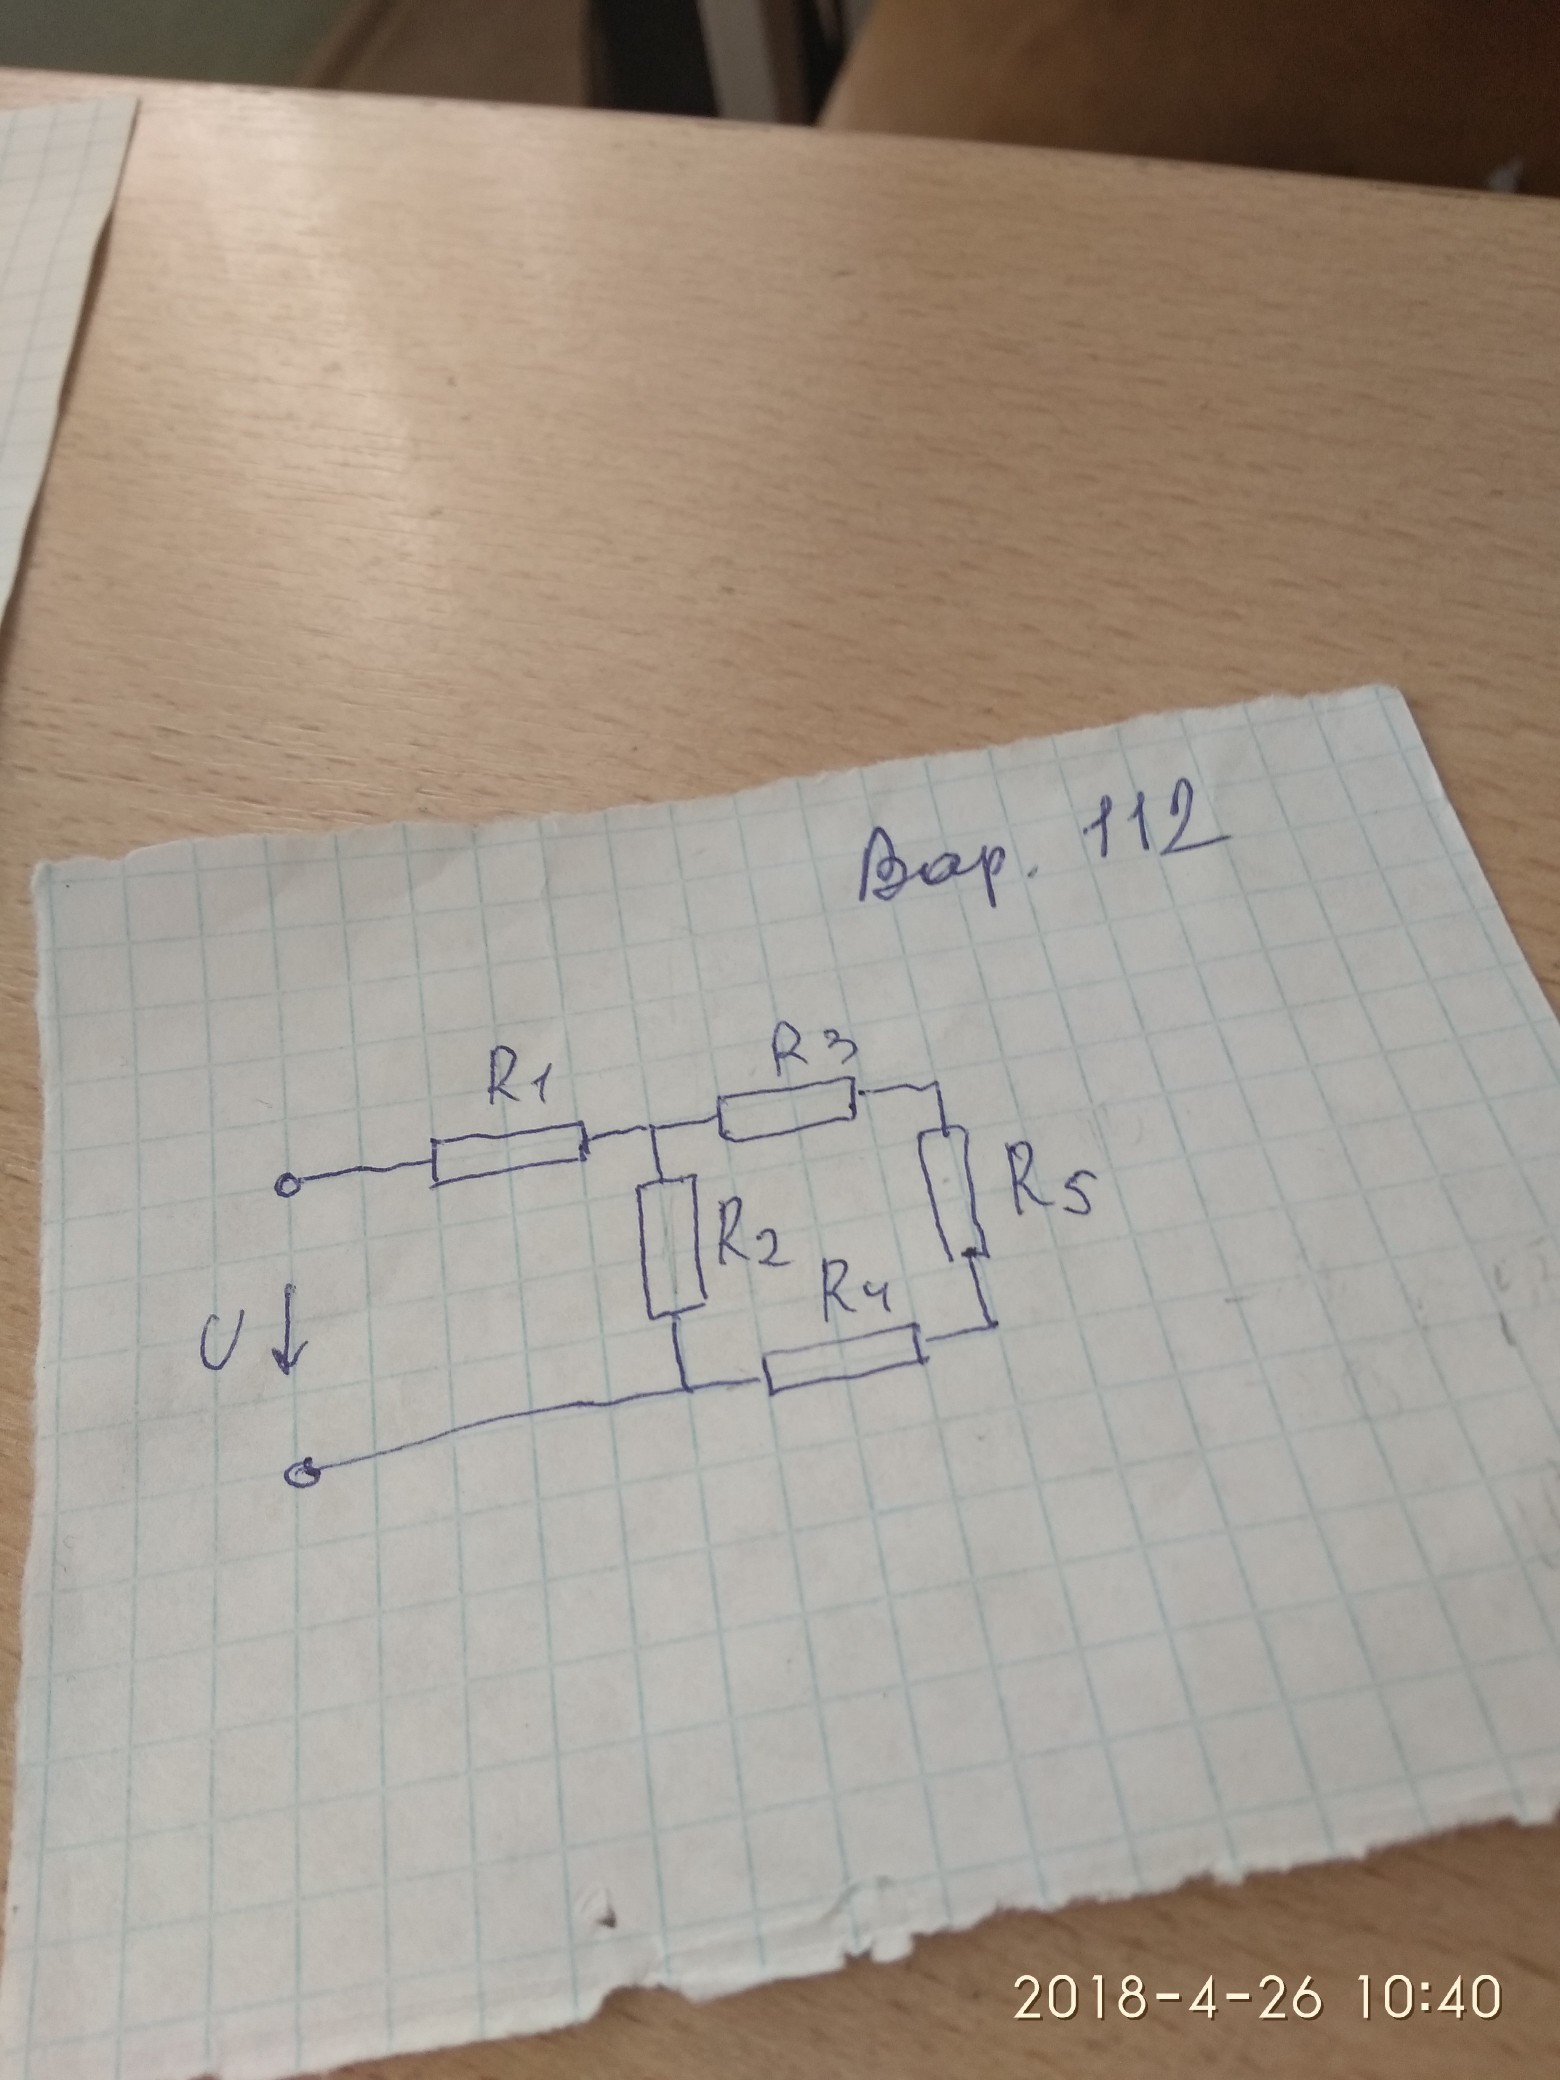 Вар. 112
R1
R3
R2
R5
R4
U
2018-4-26 10:40